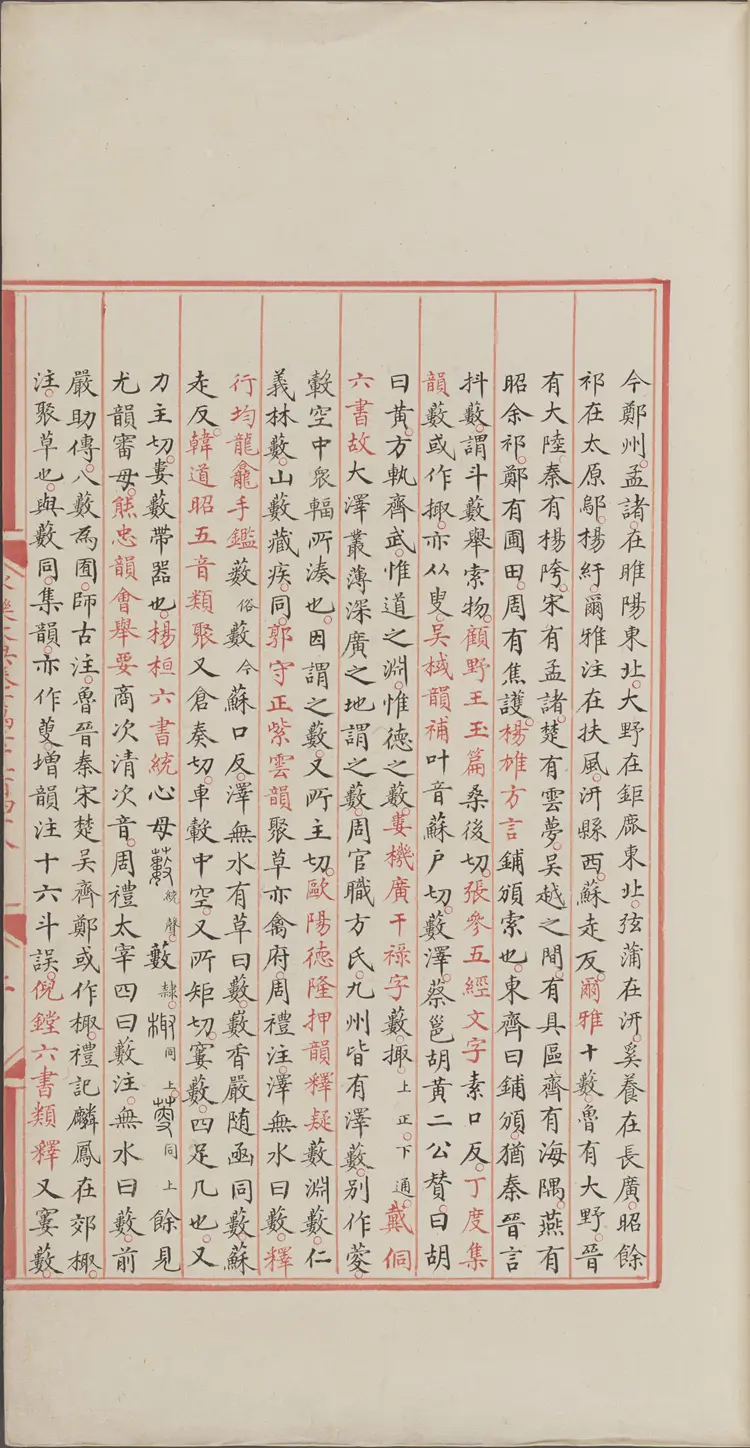 今鄭州。孟諸。在睢陽東北。大野在鉅鹿東北。弦蒲在汧。奚養在長廣。昭餘
祁在太原鄔。楊紆。爾雅注在扶風。汧縣西。蘇走反。爾雅十藪。魯有大野。晉
有大陸。秦有楊陓。宋有孟諸。楚有雲夢。吳越之間。有具區。齊有海隅。燕有
昭余祁。鄭有圃田。周有焦護。楊雄方言鋪頒索也。東齊曰鋪頒。猶秦晉言
抖藪。謂斗藪舉索物。顧野王玉篇桑後切。張參五經文字素口反。丁度集
韻藪或作掫。亦从叟。吳棫韻補叶音蘇戶切。藪澤。蔡邕胡黃二公贊。曰胡
曰黃。方軌齊武。惟道之淵。惟德之藪。婁機廣干祿字藪。掫上正。下通。戴侗
六書故大澤叢薄深廣之地謂之藪。周官職方氏。九州皆有澤藪。別作䕅。
轂空中衆輻所湊也。因謂之藪。又所主切。歐陽德隆押韻釋疑藪淵藪。仁
義林藪。山藪藏疾。同。郭守正紫雲韻聚草亦禽府。周禮注。澤無水曰藪。釋
行均龍龕手鑑藪俗藪今蘇口反。澤無水有草曰藪。藪香嚴随函同藪。蘇
走反。韓道昭五音類聚又倉奏切。車轂中空。又所矩切。窶藪。四足几也。又
力主切。婁藪帶器也。楊桓六書統心母藪統聲。藪隸。棷同上。同上餘見
尤韻審母。熊忠韻會舉要商次清次音。周禮太宰四曰藪注。無水曰藪。前
嚴助傳。八藪爲囿。師古注。魯晉秦宋楚吳齊鄭或作棷。禮記麟鳳在郊棷。
注。聚草也。與藪同。集韻。亦作䕅。增韻注十六斗誤。倪鏜六書類釋又窶藪。